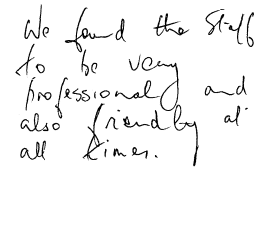 We found the Staff
to be very
professional and
also friendly at
all times.